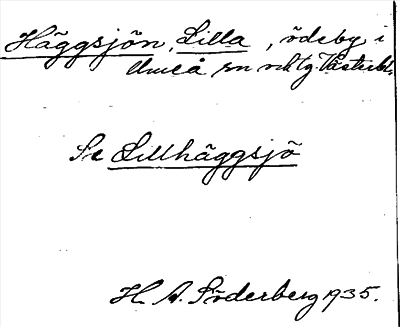 Häggsjön, Lilla, ödeby i
Umeå sn och tg Västerb.
Se Lillhäggsjö
H. A. Söderberg 1935.